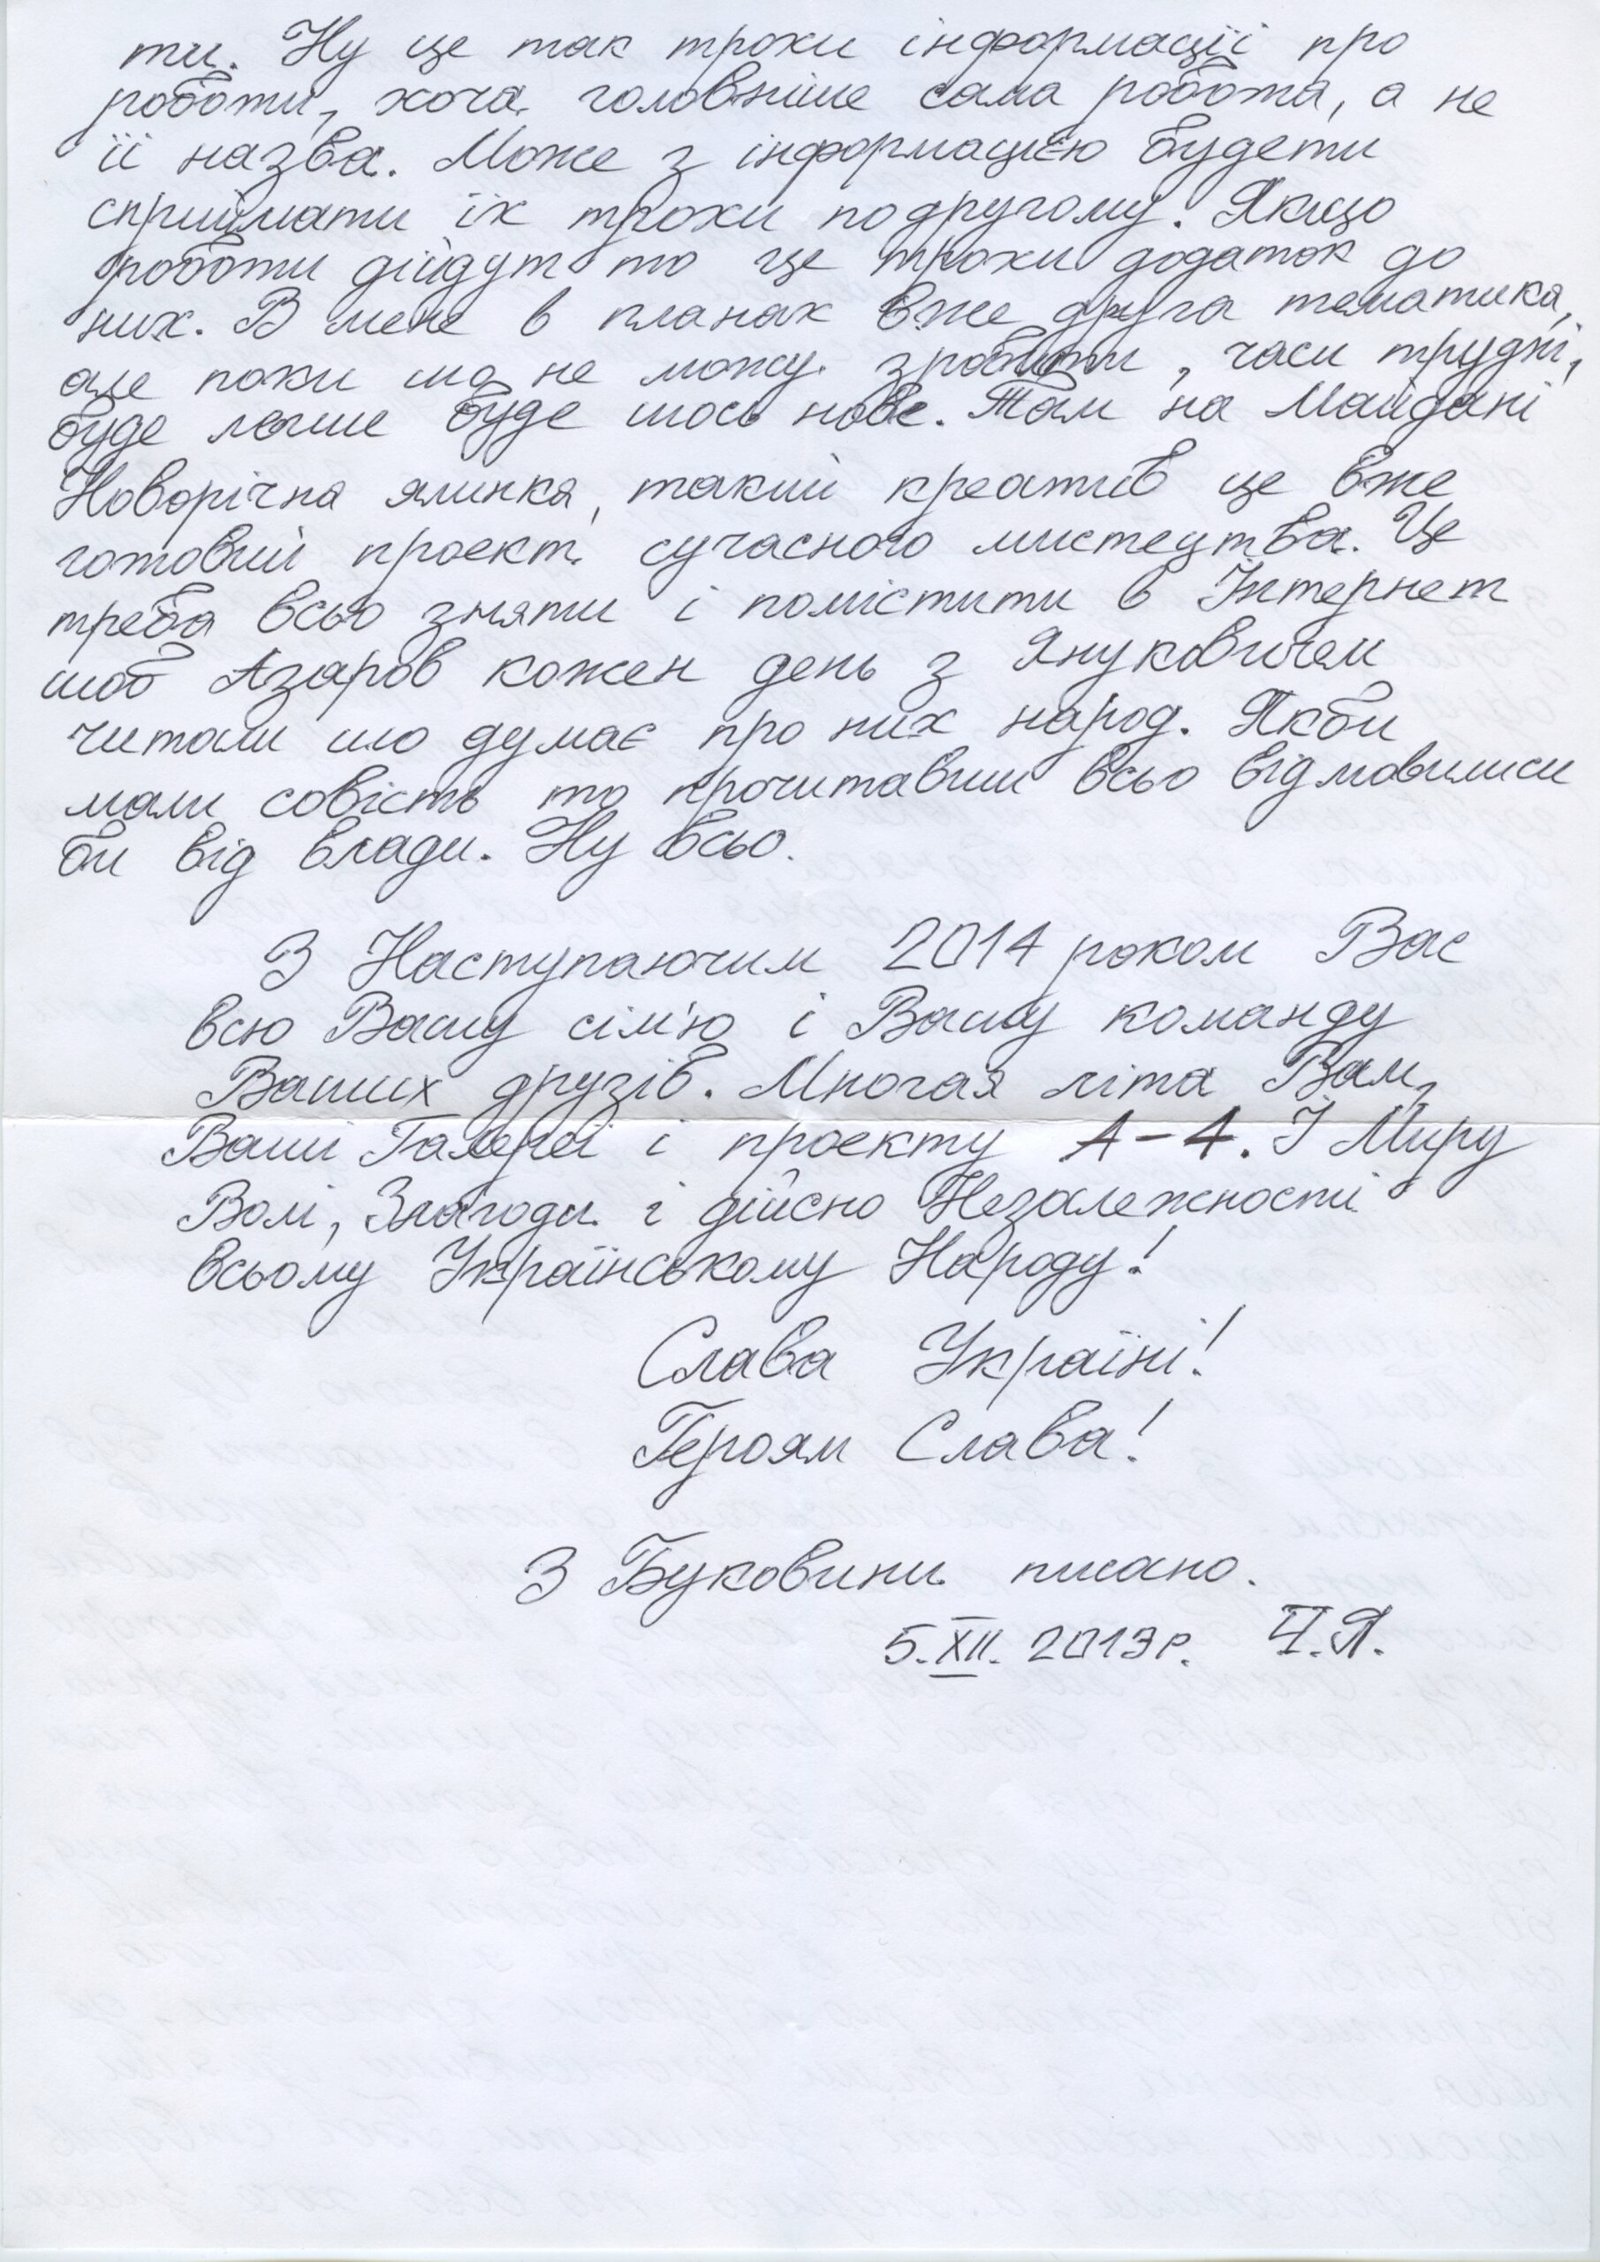 ти. Ну це так трохи інформації про
роботи, хоча головніше сама робота, а не
її назва. Може з інформацією будети
сприймати їх трохи подругому. Якщо
роботи дійдут то це трохи додаток до
них. В мене в планах вже друга тематика,
але поки шо не можу зробити, часи трудні,
буде легше буде шось нове. Там на Майдані
Новорічна ялинка, такий креатив це вже
готовий проект сучасного мистецтва. Це
треба всьо зняти і помістити в Інтернет
шоб Азаров кожен день з Януковичем
читали шо думає про них народ. Якби
мали совість то прочитавши всьо відмовилиси
би від влади. Ну всьо.
З Наступаючим 2014 роком Вас
всю Вашу сім'ю і Вашу команду
Ваших друзів. Многая літа Вам,
Ваші Галереї і проекту А-4. І Миру
Волі, Злагоди і дійсно Незалежності
всьому Українському Народу!
Слава Україні!
Героям Слава!
З Буковини писано.
5.XII. 2013р. Ч.Я.